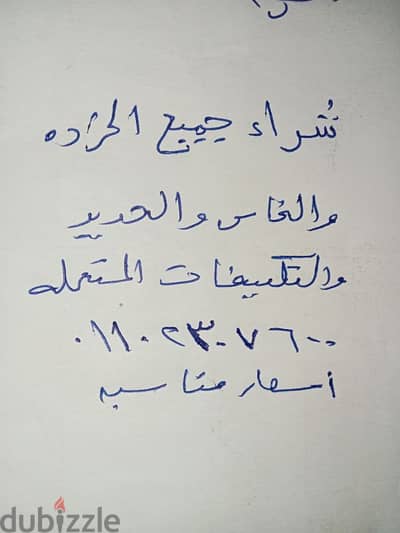 شراء جميع الخرده
والنحاس والحديد
والتكييفات المستعمله
٠١١٠٢٣٠٧٦٠٠
أسعار مناسبه
dubizzle